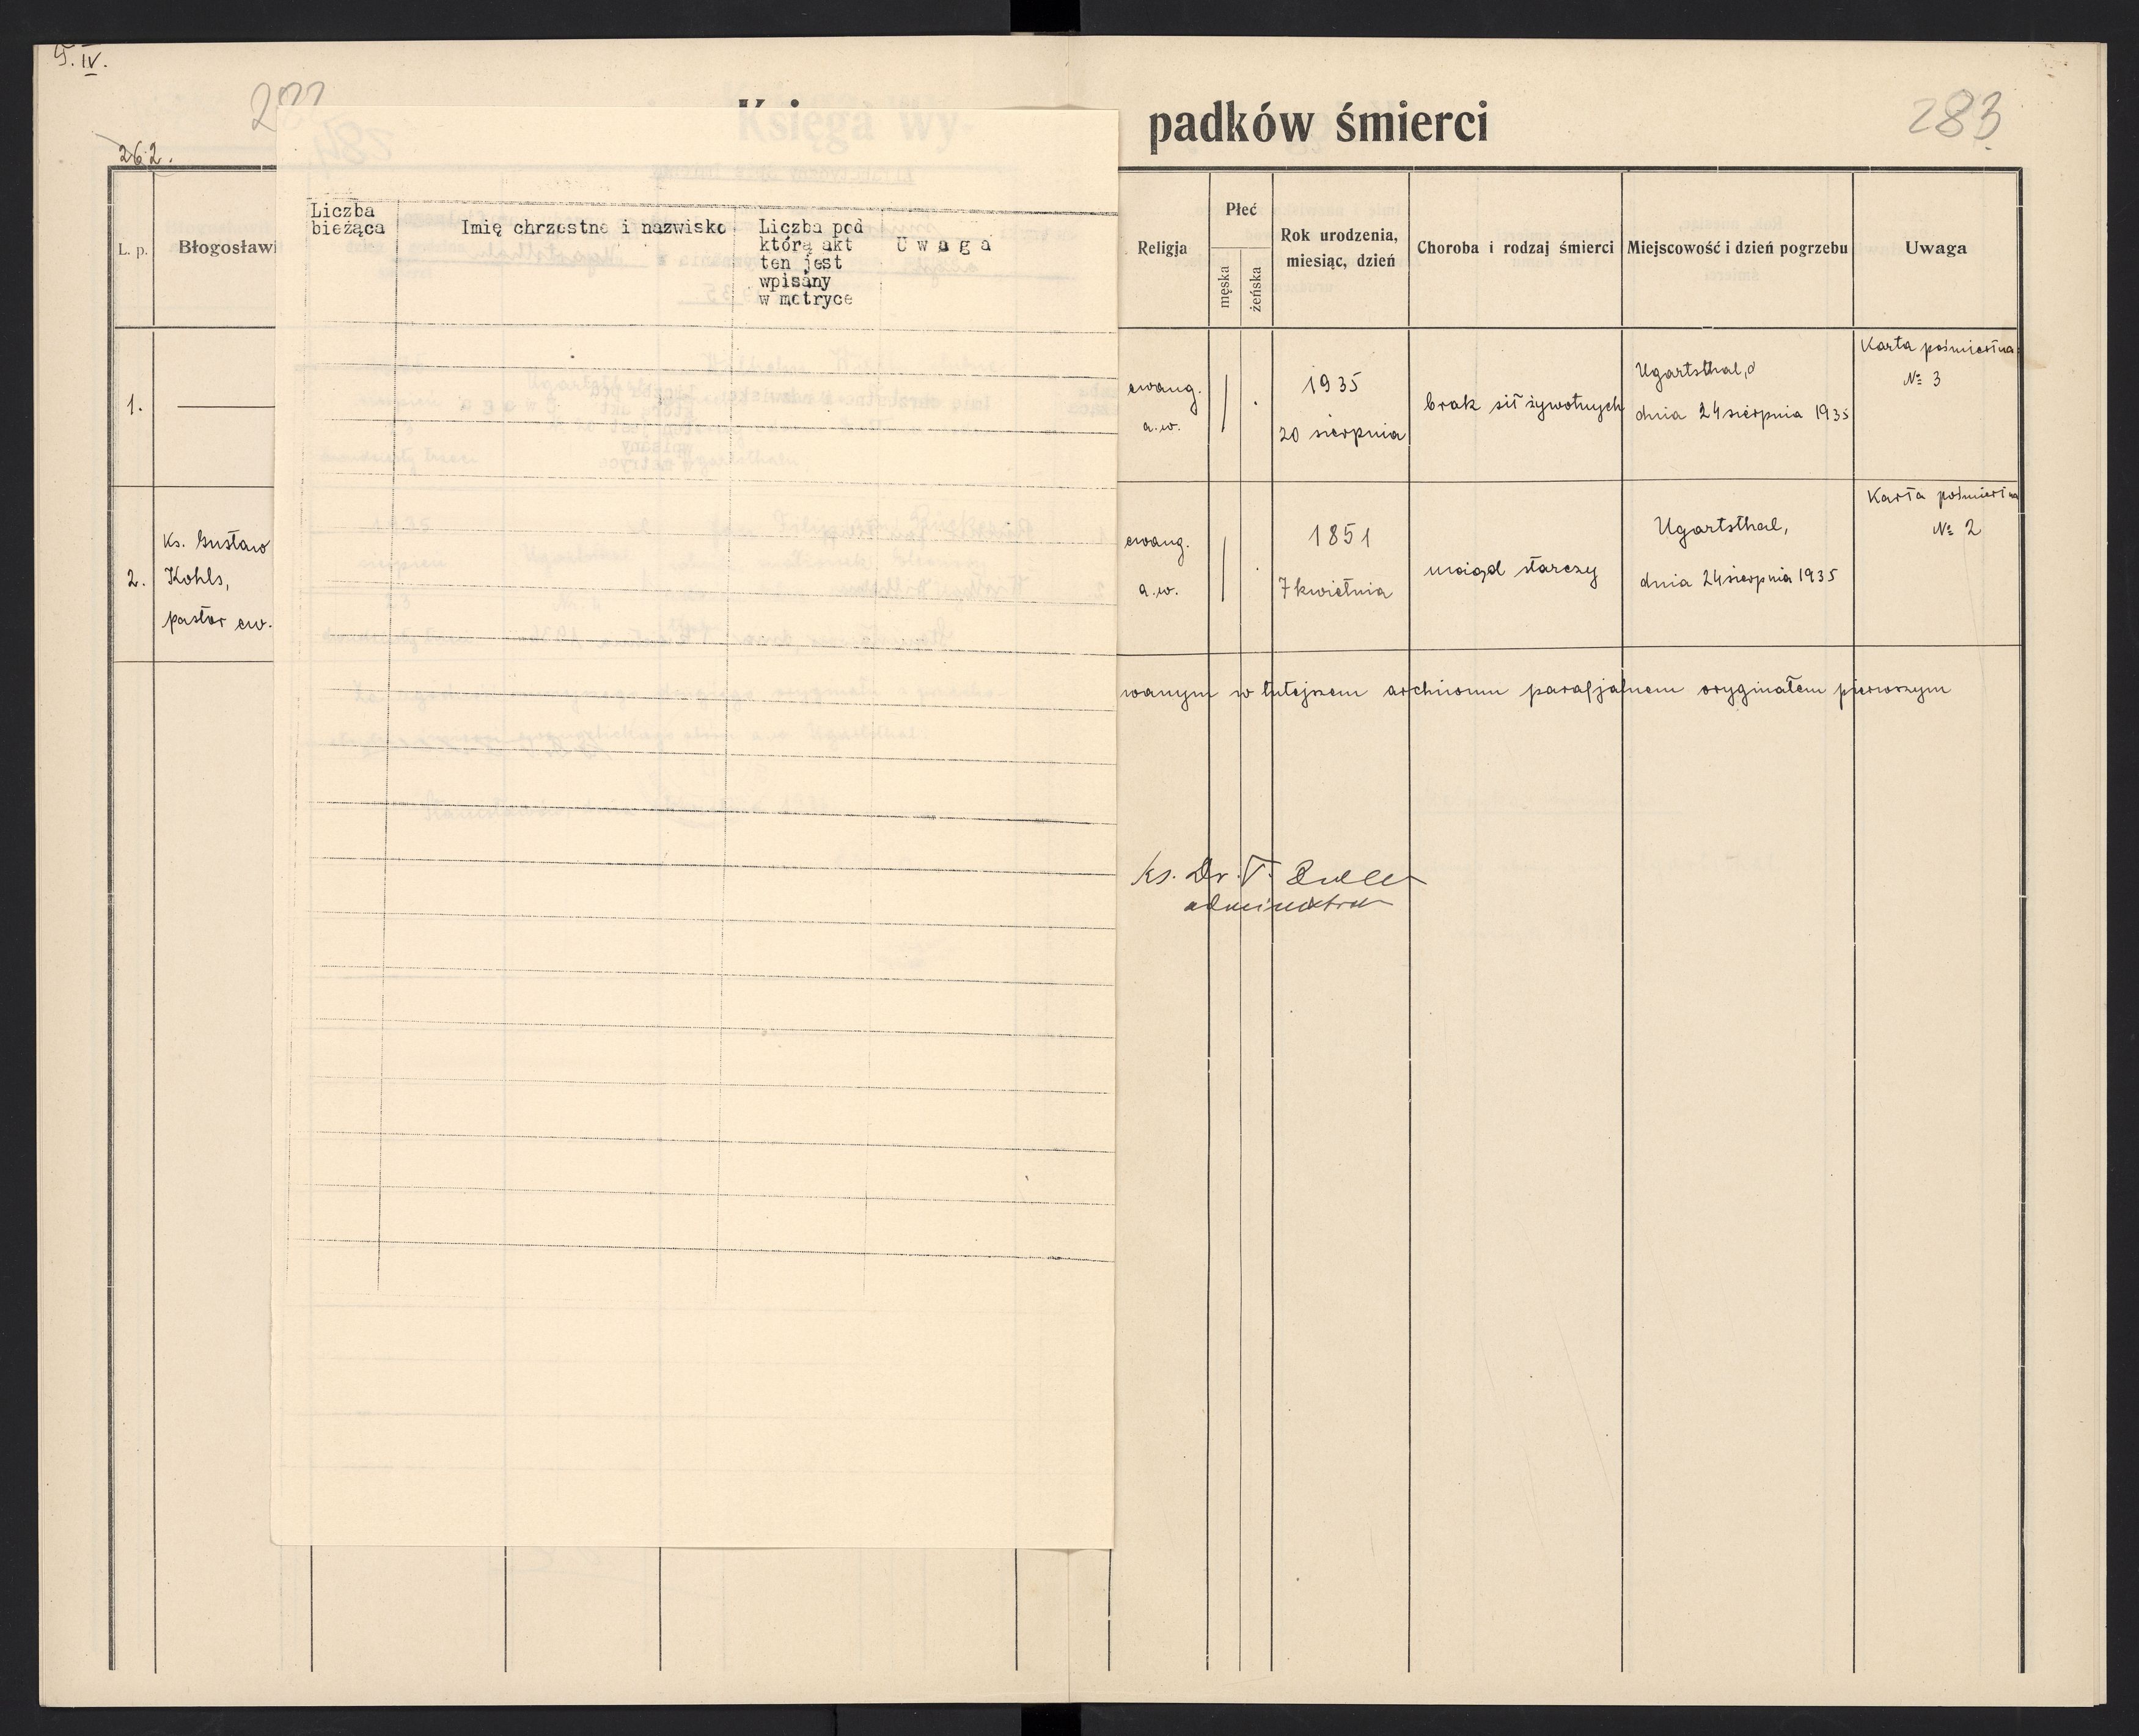 T. IV.
282
283
262.
Księga wy-
padków śmierci
L. p.
Błogosławi
Liczba
bieżąca
Imię chrzestne i nazwisko
Liczba pod
którą akt
ten jest
wpisany
w metryce
U w a g a
Religja
Płeć
męska
żeńska
Rok urodzenia,
miesiąc, dzień
Choroba i rodzaj śmierci
Miejscowość i dzień pogrzebu
Uwaga
1.
ewang.
a.w.
1935
20 sierpnia
brak sił żywotnych
Ugartsthal,
dnia 24 sierpnia 1935
Karta pośmiertna
№ 3
2.
Ks. Gustaw
Kohls,
pastor ew.
ewang.
a.w.
1851
7 kwietnia
uwiąd starczy
Ugartsthal,
dnia 24 sierpnia 1935
Karta pośmiertna
№ 2
wanym w tutejszem archiwum parafjalnem oryginałem pierwszym
Ks. Dr. T.
administrator